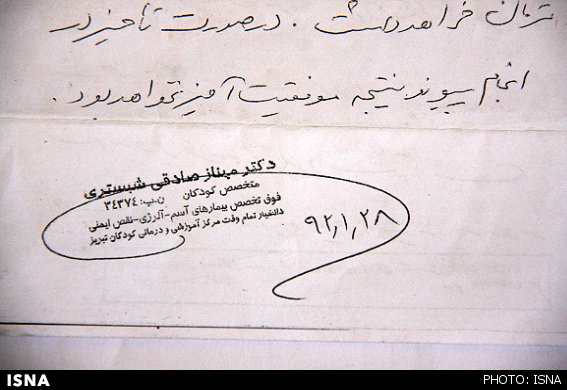 خواهد داشت . در صورت تاخیر در
انجام پیوند نتیجه موفقیت آمیز نخواهد بود .
دکتر میناز صادقی شبستری
متخصص کودکان ن.پ: ۳۴۳۷۴
فوق تخصص بیماریهای آسم-آلرژی-نقص ایمنی
دانشیار تمام وقت مرکز آموزشی و درمانی کودکان تبریز
۹۲,۱,۲۸
ISNA
PHOTO: ISNA